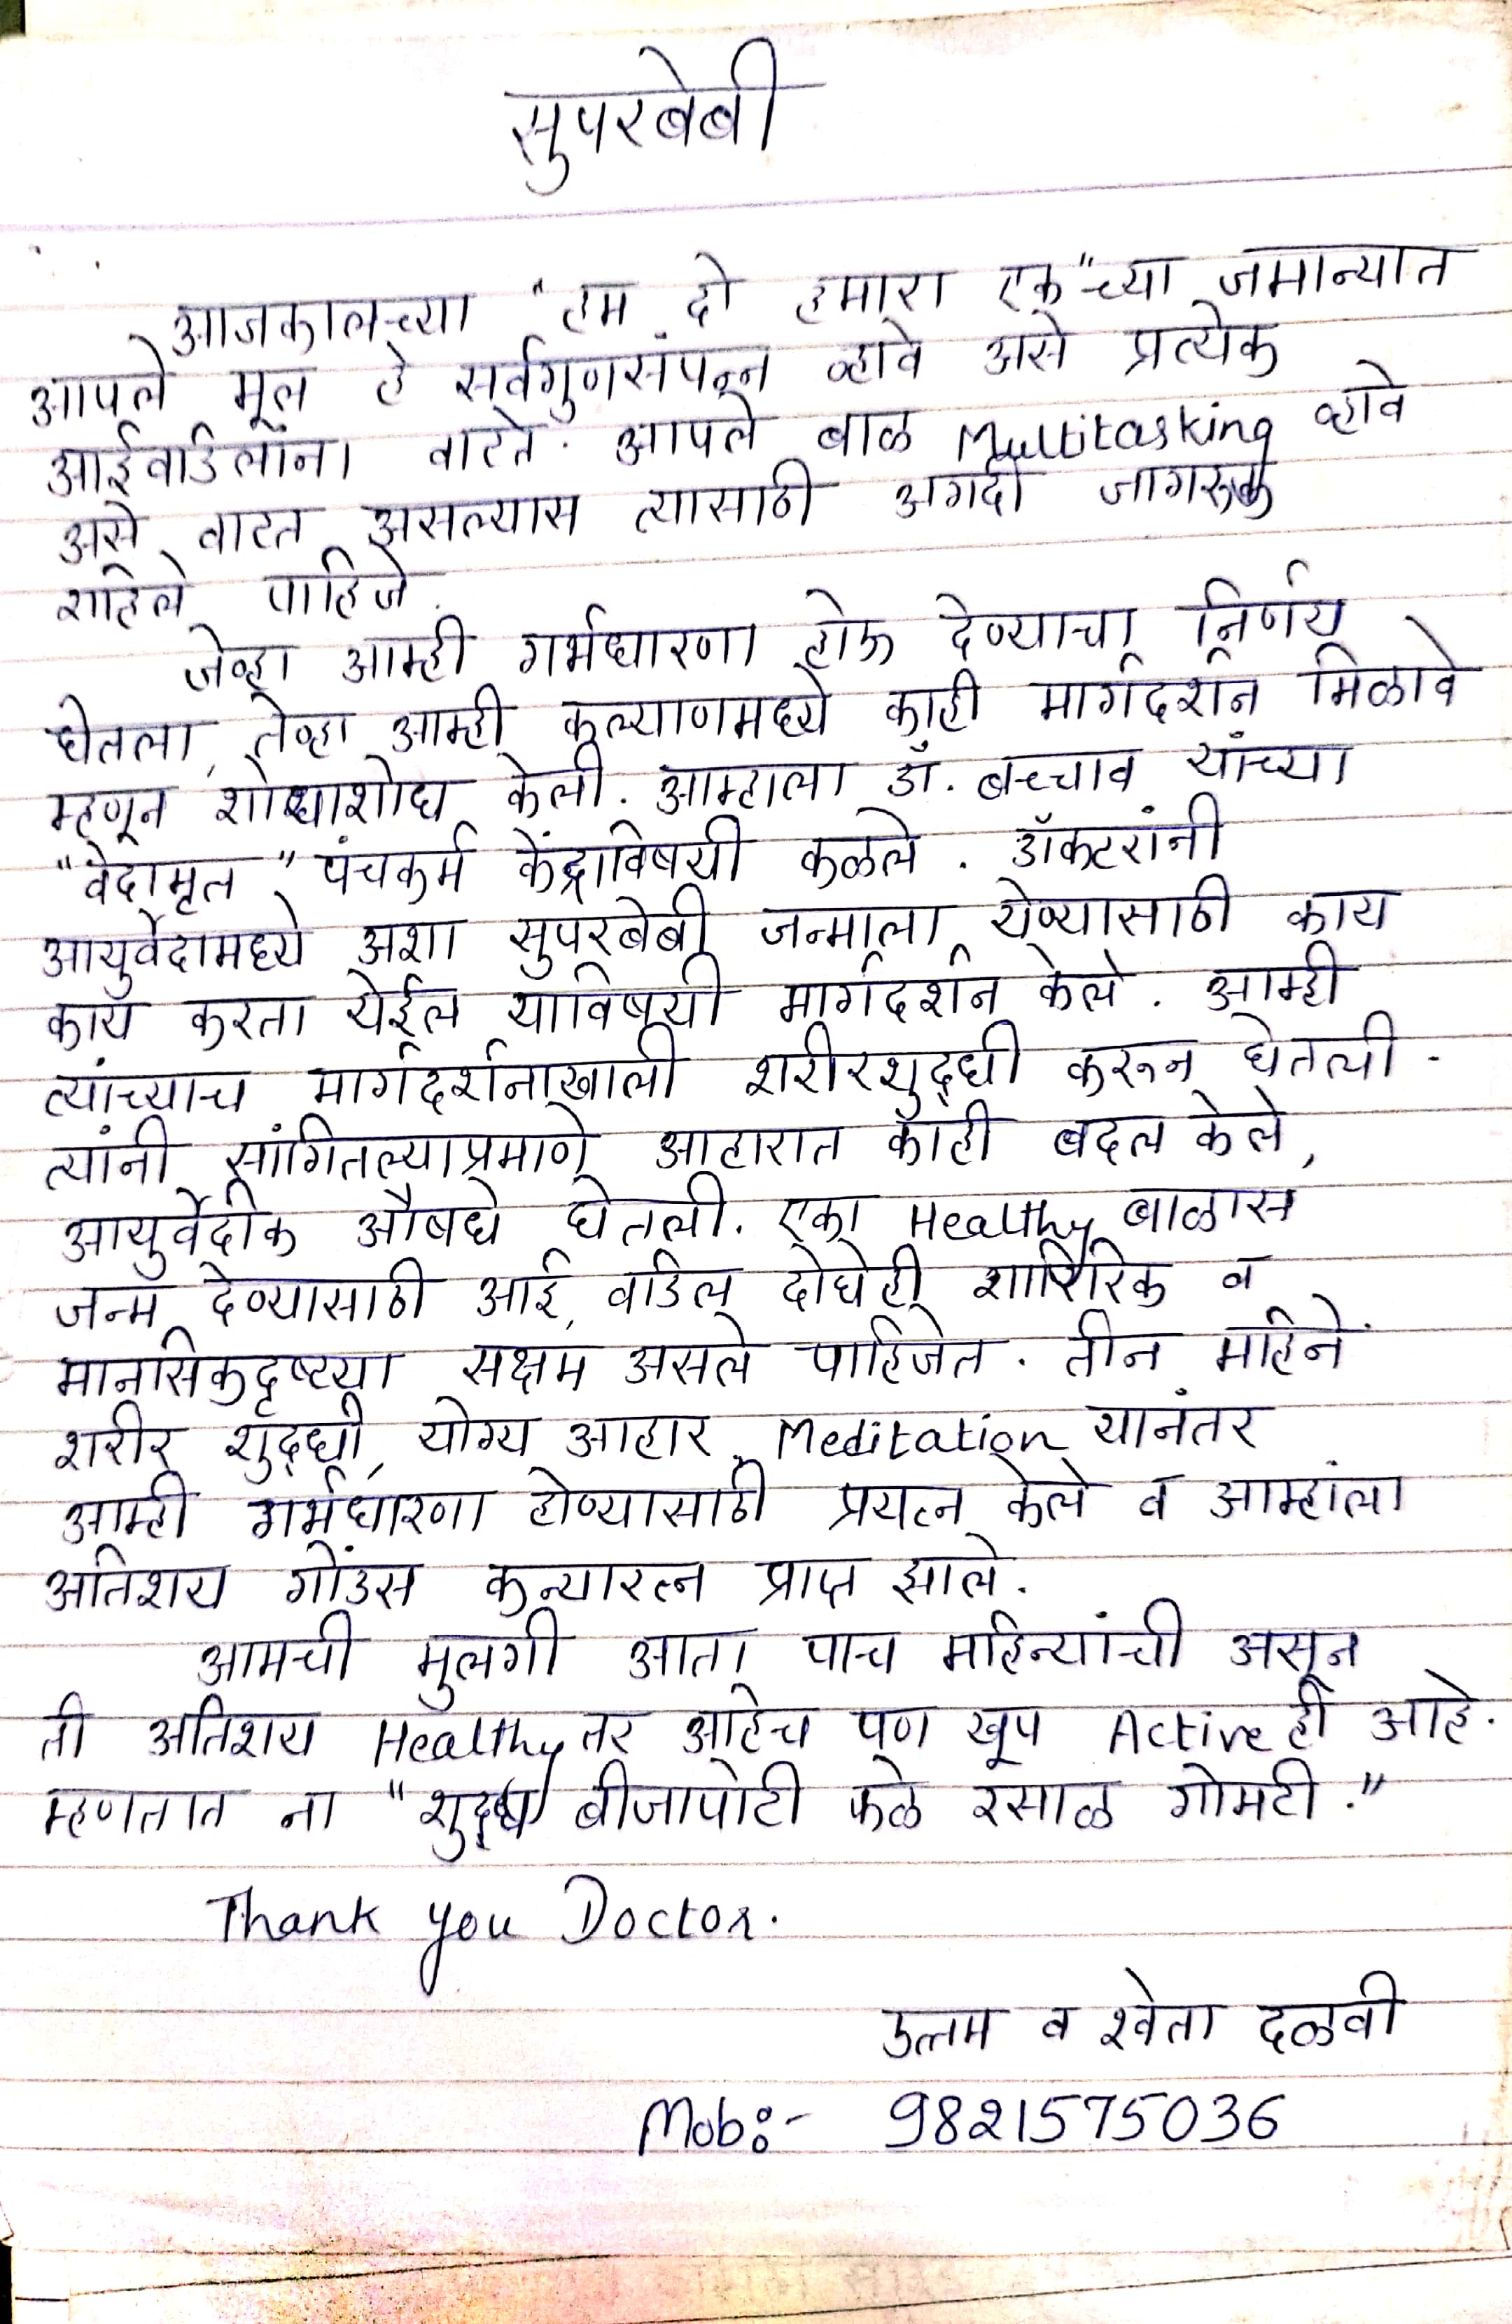 सुपरबेबी
आजकालच्या "हम दो हमारा एक"च्या जमान्यात
आपले मूल हे सर्वगुणसंपन्न व्हावे असे प्रत्येक
आईवडिलांना वाटते. आपले बाळ Multitasking व्हावे
असे वाटत असल्यास त्यासाठी अगदी जागरूक
राहिले पाहिजे.
जेव्हा आम्ही गर्भधारणा होऊ देण्याचा निर्णय
घेतला, तेव्हा आम्ही कल्याणमध्ये काही मार्गदर्शन मिळावे
म्हणून शोधाशोध केली. आम्हाला डॉ. बच्चाव यांच्या
"वेदामृत" पंचकर्म केंद्राविषयी कळले. डॉक्टरांनी
आयुर्वेदामध्ये अशा सुपरबेबी जन्माला येण्यासाठी काय
काय करता येईल याविषयी मार्गदर्शन केले. आम्ही
त्यांच्याच मार्गदर्शनाखाली शरीरशुद्धी करून घेतली.
त्यांनी सांगितल्याप्रमाणे आहारात काही बदल केले,
आयुर्वेदीक औषधे घेतली. एका Healthy बाळास
जन्म देण्यासाठी आई, वडिल दोघेही शारिरिक व
मानसिकदृष्ट्या सक्षम असले पाहिजेत. तीन महिने
शरीर शुद्धी, योग्य आहार, Meditation यानंतर
आम्ही गर्भधारणा होण्यासाठी प्रयत्न केले व आम्हांला
अतिशय गोंडस कन्यारत्न प्राप्त झाले.
आमची मुलगी आता पाच महिन्यांची असून
ती अतिशय Healthy तर आहेच पण खूप Active ही आहे.
म्हणतात ना "शुद्ध बीजापोटी फळे रसाळ गोमटी."
Thank you Doctor.
उत्तम व श्वेता दळवी
Mob:- 9821575036